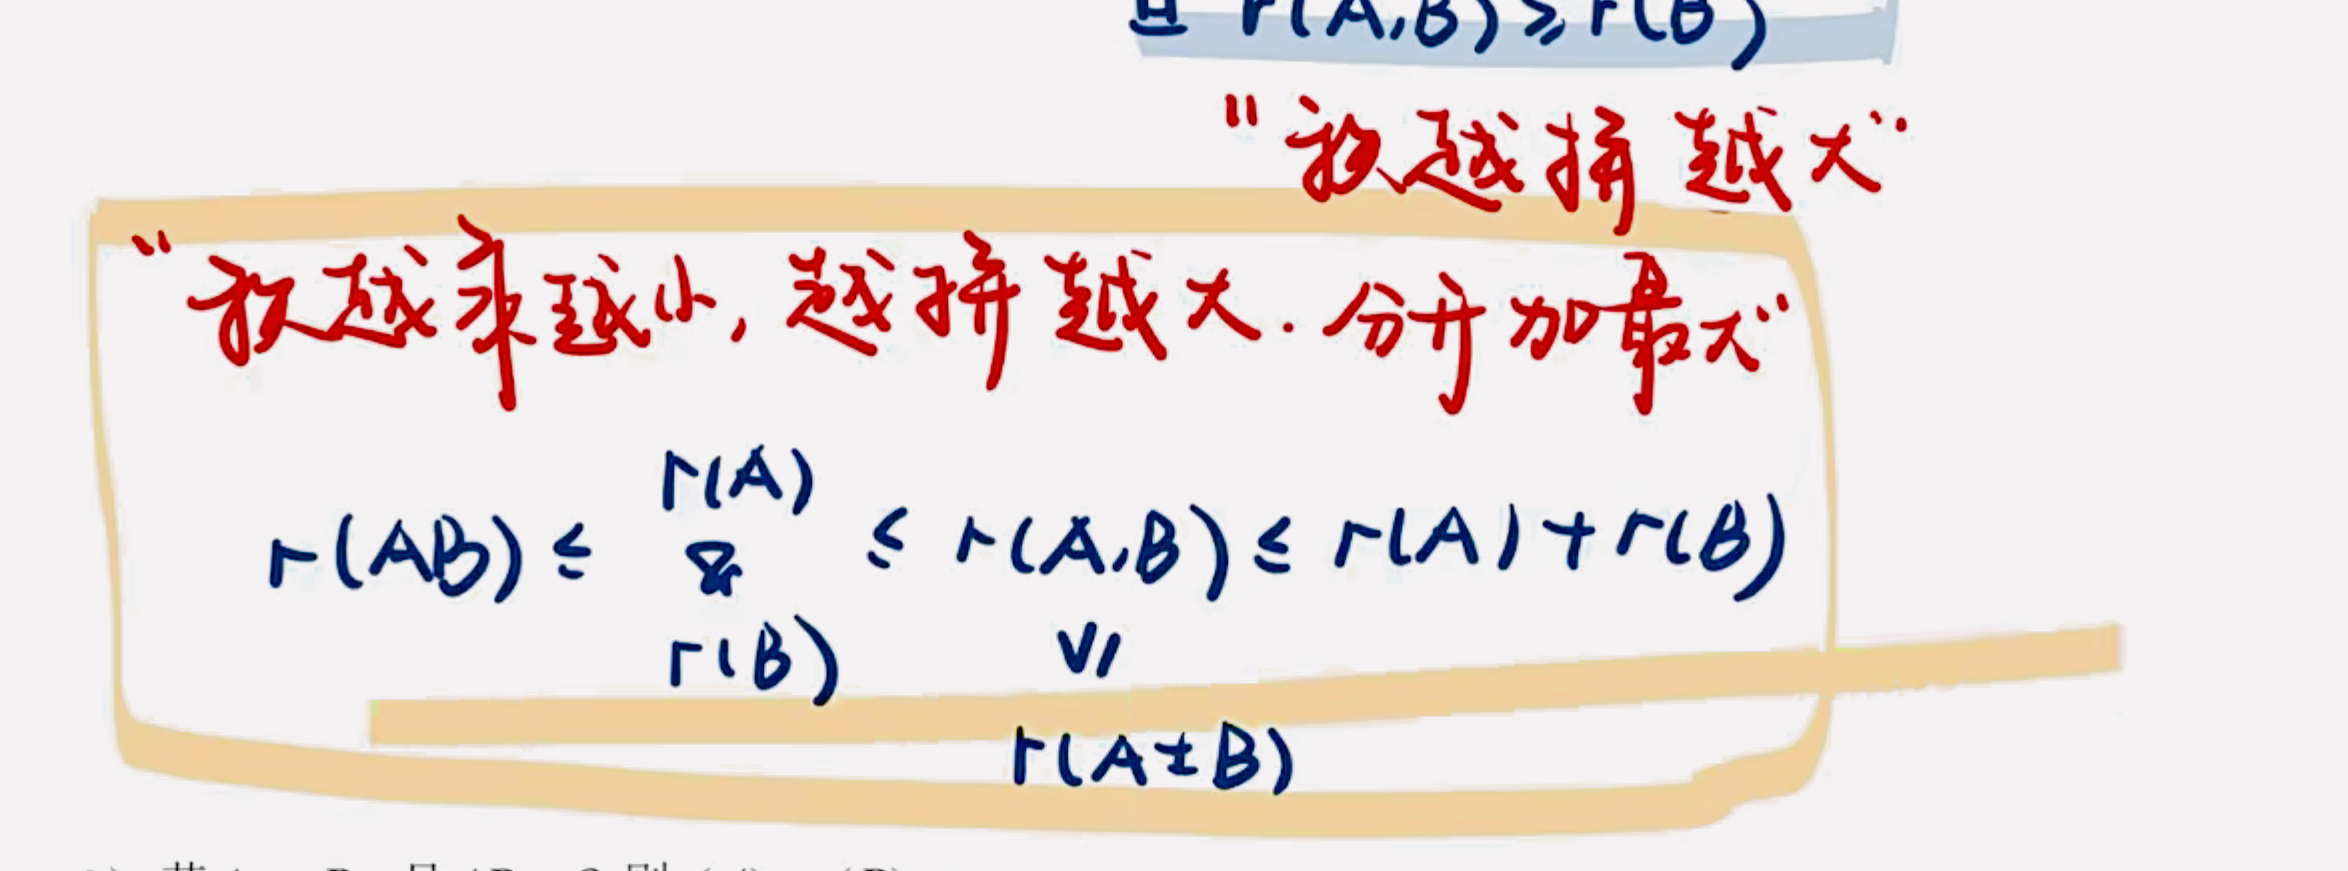 且 r(A,B)≥r(B)
"秩越拼越大"
"秩越乘越小,越拼越大.分开加最大"
r(A)
r(AB)≤ & ≤ r(A,B)≤ r(A)+r(B)
r(B) ≥
r(A±B)